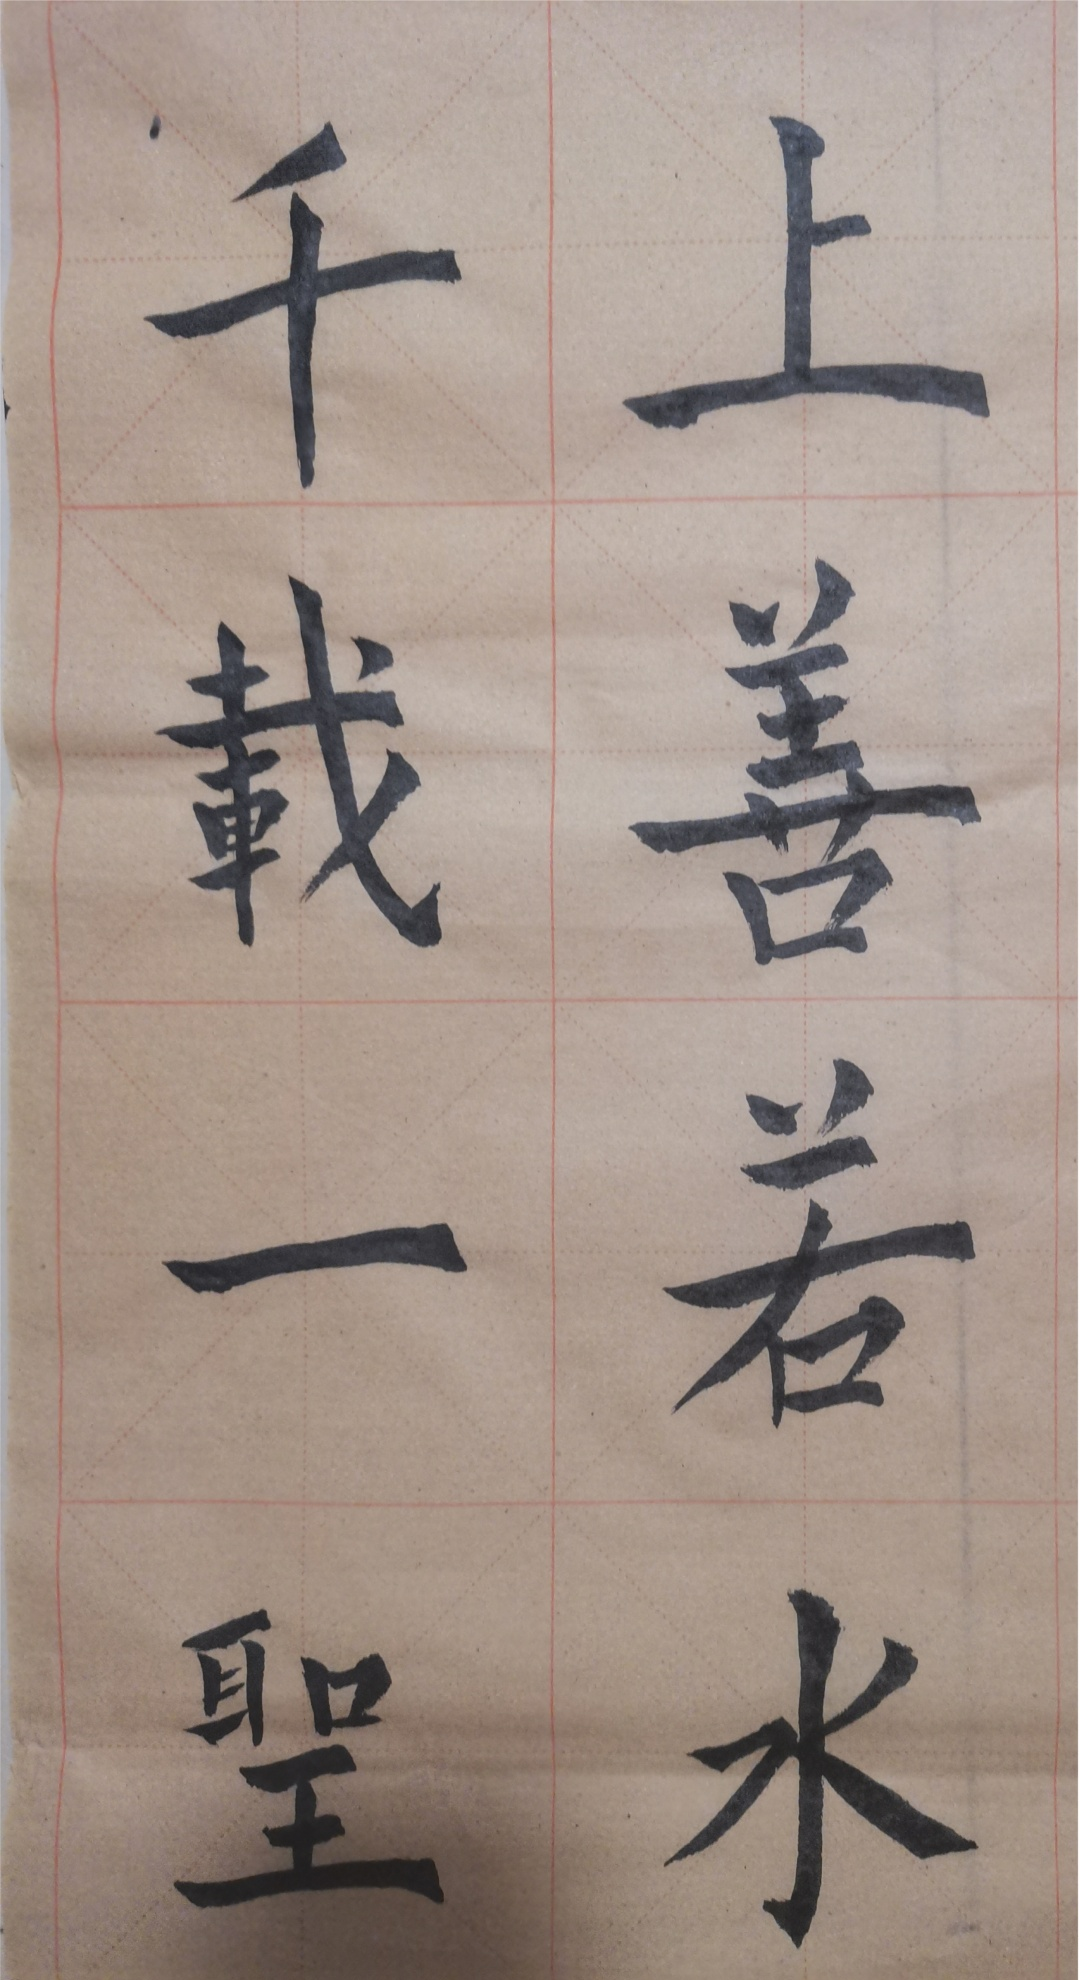 上善若水
千載一聖